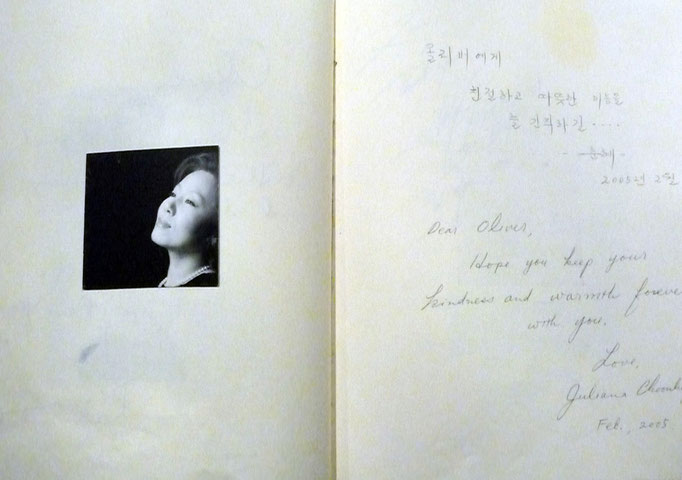 올리버에게
친절하고 따뜻한 마음을
늘 간직하길....
2005년 2월
Dear Oliver,
Hope you keep your
kindness and warmth foreve
with you.
Love,
Juliana
Feb., 2005